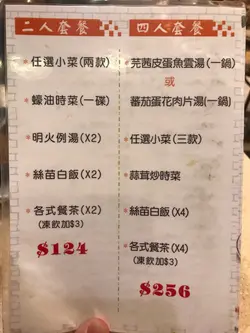 二人套餐
任選小菜(兩款)
蠔油時菜(一碟)
明火例湯(X2)
絲苗白飯(X2)
各式餐茶(X2)
(凍飲加$3)
$124
四人套餐
芫茜皮蛋魚雲湯(一鍋)
或
蕃茄蛋花肉片湯(一鍋)
任選小菜(三款)
蒜茸炒時菜
絲苗白飯(X4)
各式餐茶(X4)
(凍飲加$3)
$256